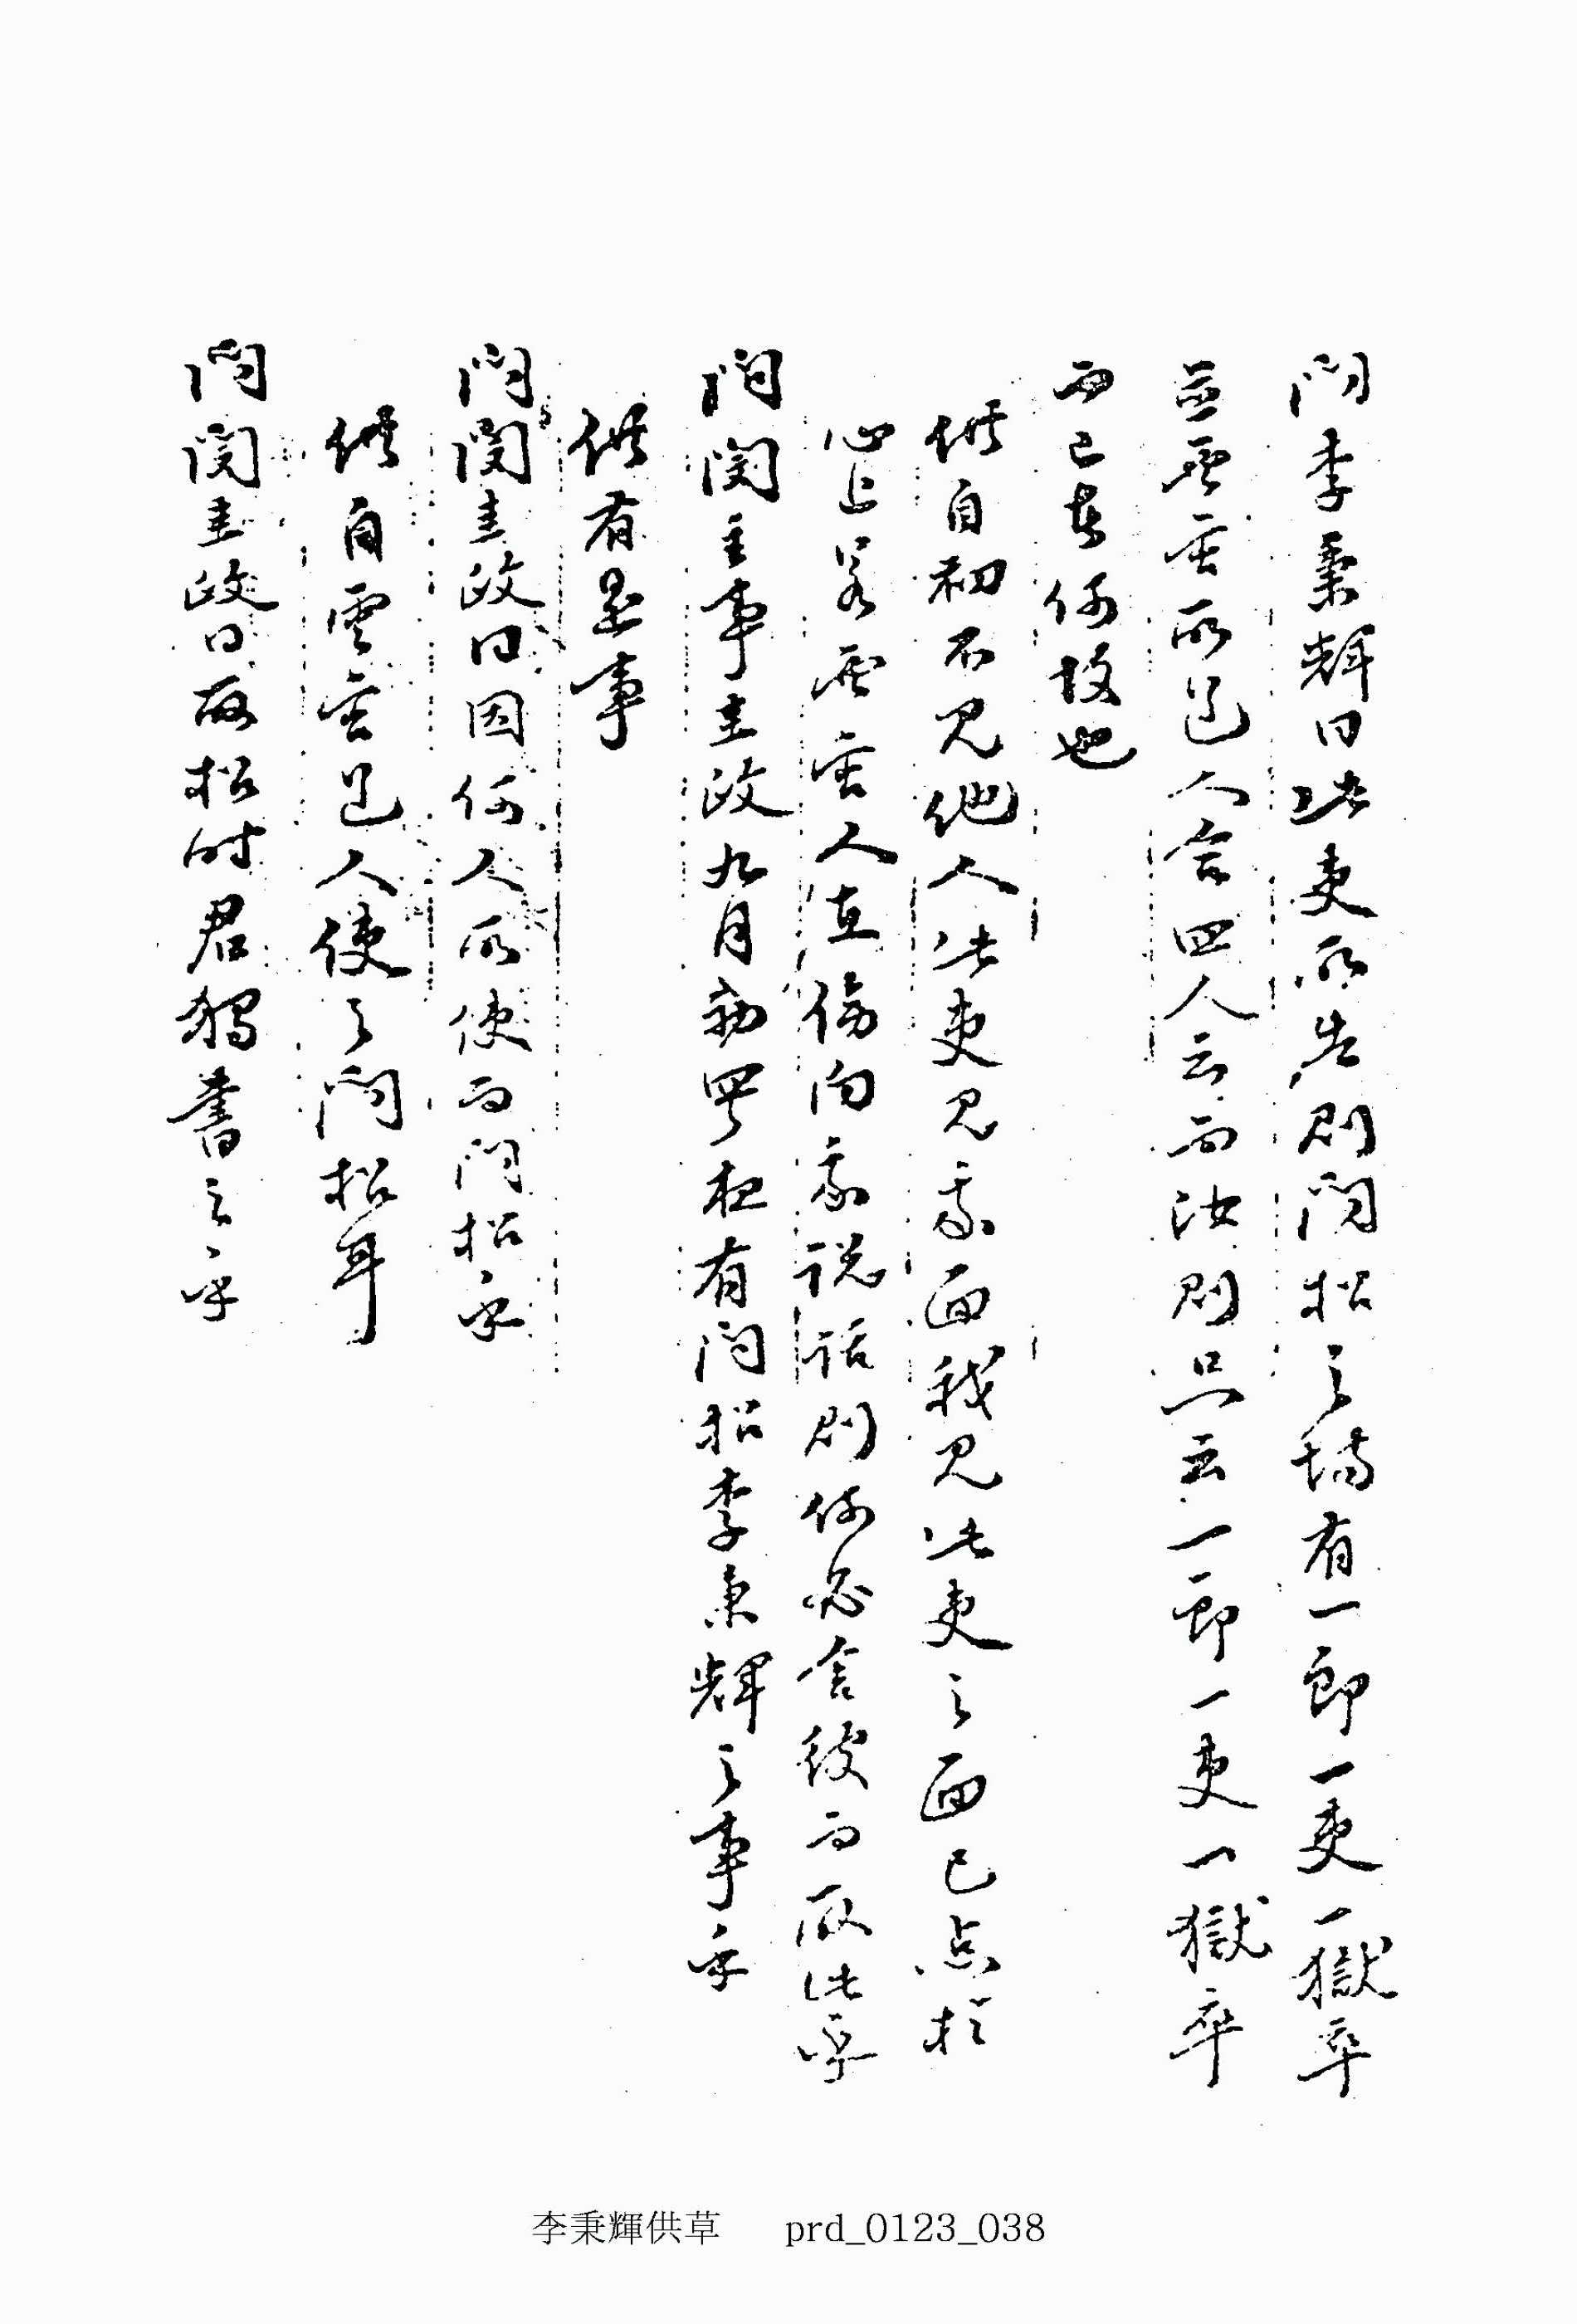 問李秉輝曰此吏所告則問招之場有一郎一吏一獄卒
並雲宮所逞人合四人云而汝則只云一郎一吏一獄卒
而已者何故也
供自初不見他人此吏見我面我見此吏之面已点於
心上若雲宮人在傍向我說話則何必舍彼而取此乎
問閔主事圭政九月初四夜有問招李秉輝之事乎
供有是事
問閔圭政曰因何人所使而問招乎
供自雲宮逞人使之問招耳
問閔圭政曰取招時君獨書之乎
李秉輝供草 prd_0123_038